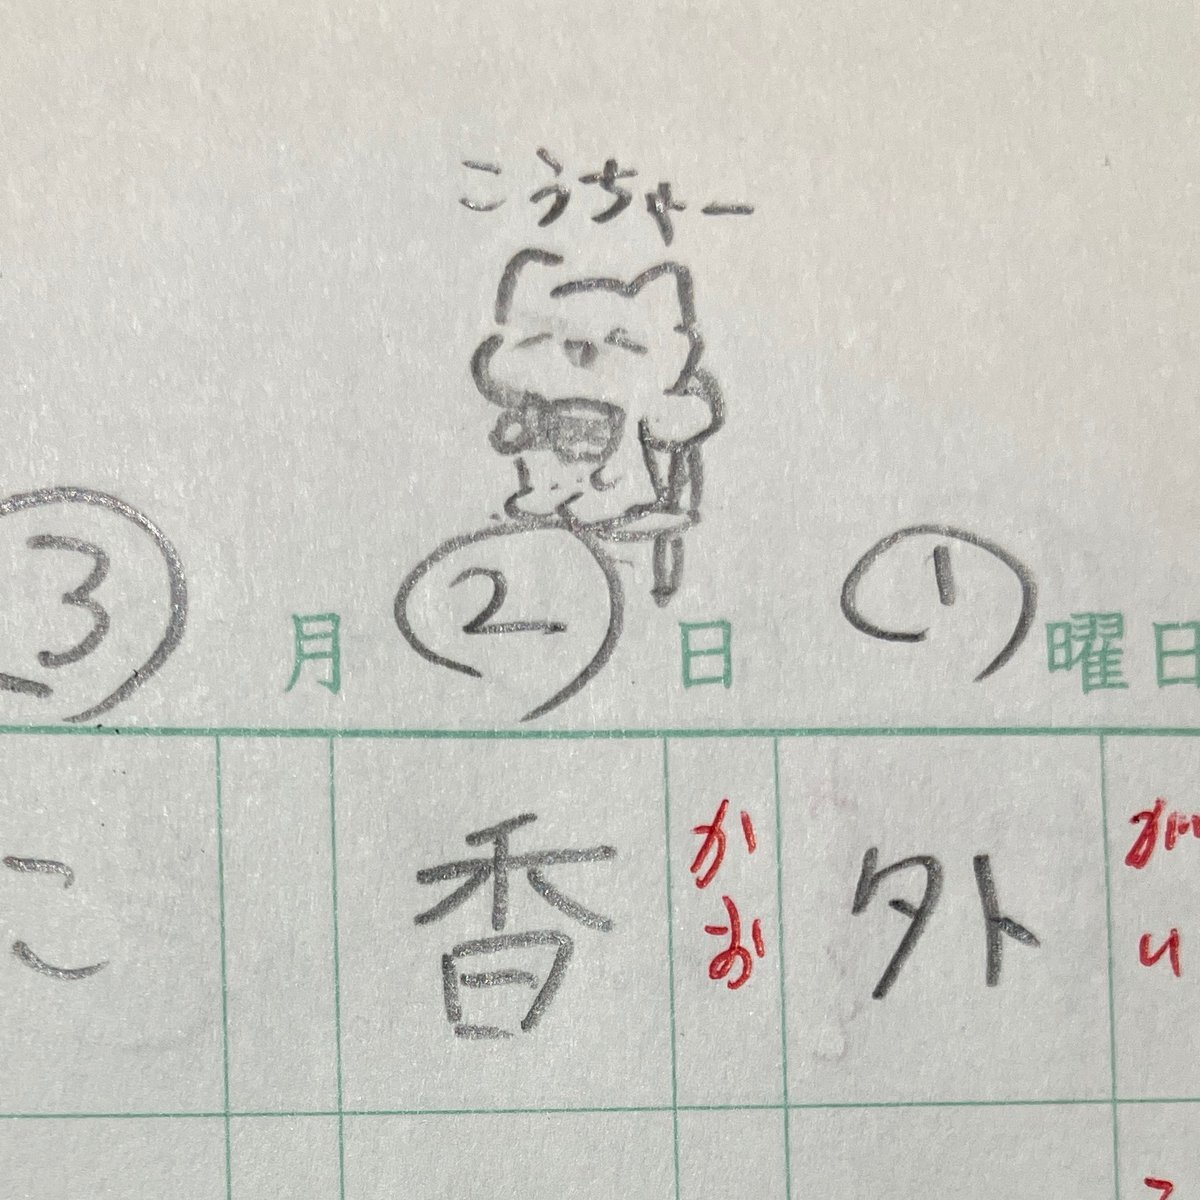 こうちゃー
③ 月 ② 日 ① 曜日
外
がい
香
かお
こ